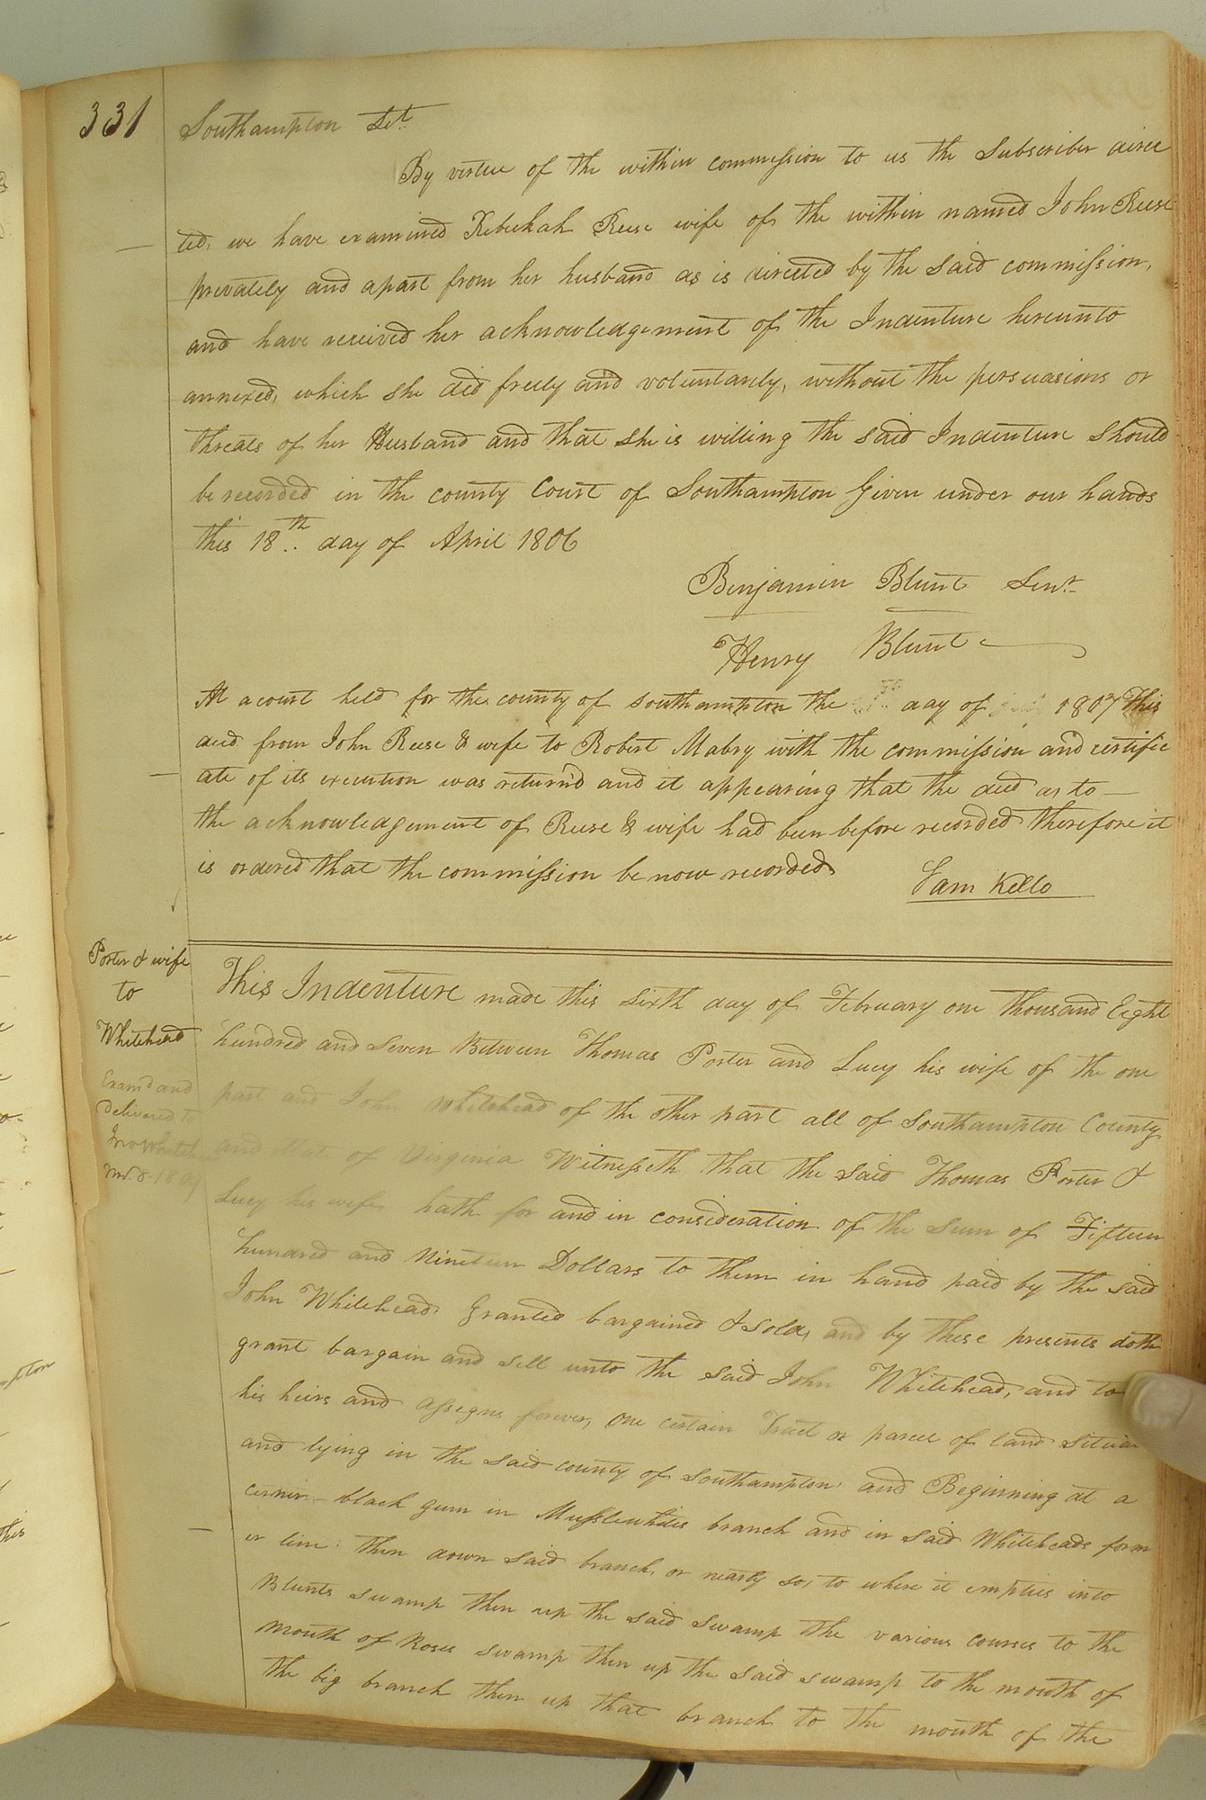 331
Southampton Sct.
By virtue of the within commission to us the Subscriber direc
ted, we have examined Rebekah Reese wife of the within named John Reese
privately and apart from her husband as is directed by the said commission,
and have received her acknowledgement of the Indenture hereunto
annexed, which she did freely and voluntarily, without the persuasions or
threats of her Husband and that she is willing the said Indenture should
be recorded in the county Court of Southampton Given under our hands
this 18th day of April 1806
Benjamin Blunt Senr.
Henry Blunt
At a court held for the county of Southampton the day of 1807 This
deed from John Reese & wife to Robert Mabry with the commission and certific
ate of its execution was returnd and it appearing that the deed as to
the acknowledgement of Reese & wife had been before recorded therefore it
is ordered that the commission be now recorded
Sam Kello
Porter & wife
to
Whitehead
Examd and
delivered to
Jno Whiteh
This Indenture made this sixth day of February one thousand Eight
hundred and seven Between Thomas Porter and Lucy his wife of the one
part and John Whitehead of the other part all of Southampton County
and State of Virginia Witnesseth that the said Thomas Porter &
Lucy his wife hath for and in consideration of the Sum of Fifteen
hundred and Nineteen Dollars to them in hand paid by the said
John Whitehead Granted bargained & sold, and by these presents doth
grant bargain and sell unto the said John Whitehead, and to
his heirs and assigns forever, one certain Tract or parcel of land situa
and lying in the said county of Southampton and Beginning at a
corner black gum in branch and in said Whiteheads form
er line: then down said branch, or nearly so, to where it empties into
Blunts swamp then up the said swamp the various courses to the
mouth of Roses swamp then up the said swamp to the mouth of
the big branch then up that branch to the mouth of the